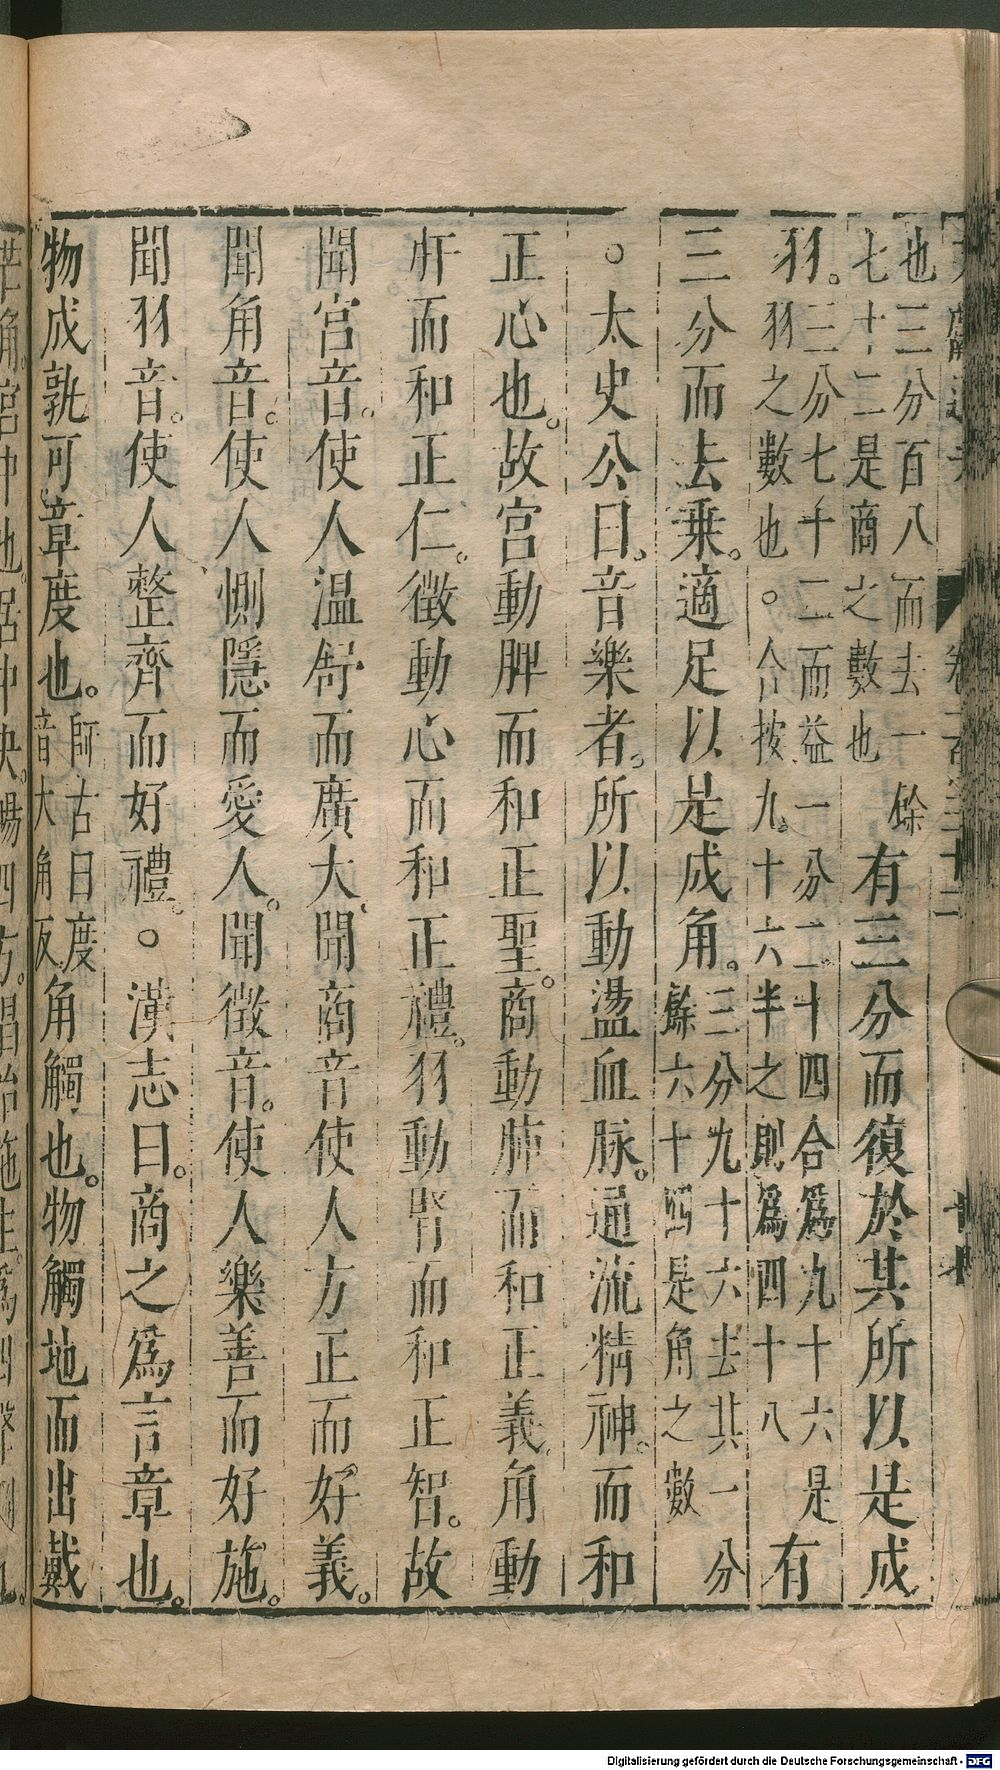 也三分百八而去一餘
七十二是商之數也
有三分而復於其所以是成
羽。三分七十二而益一分二十四合爲九十六是
羽之數也。○合按九十六半之則爲四十八
有
三分而去乗。適足以是成角。
三分九十六去其一分
餘六十四是角之數
○太史公曰。音樂者。所以動盪血脉。通流精神。而和
正心也。故宮動脾而和正聖。商動肺而和正義。角動
肝而和正仁。徵動心而和正禮。羽動腎而和正智。故
聞宮音。使人温舒而廣大。聞商音使人方正而好義。
聞角音。使人惻隱而愛人。聞徵音。使人樂善而好施。
聞羽音。使人整齊而好禮。○漢志曰。商之爲言章也。
物成孰可章度也。
師古曰度
音大角反
角觸也。物觸地而出戴
芒角。宮中也。居中央。暢四方。唱始施生。爲四聲綱也。
Digitalisierung gefördert durch die Deutsche Forschungsgemeinschaft - DFG